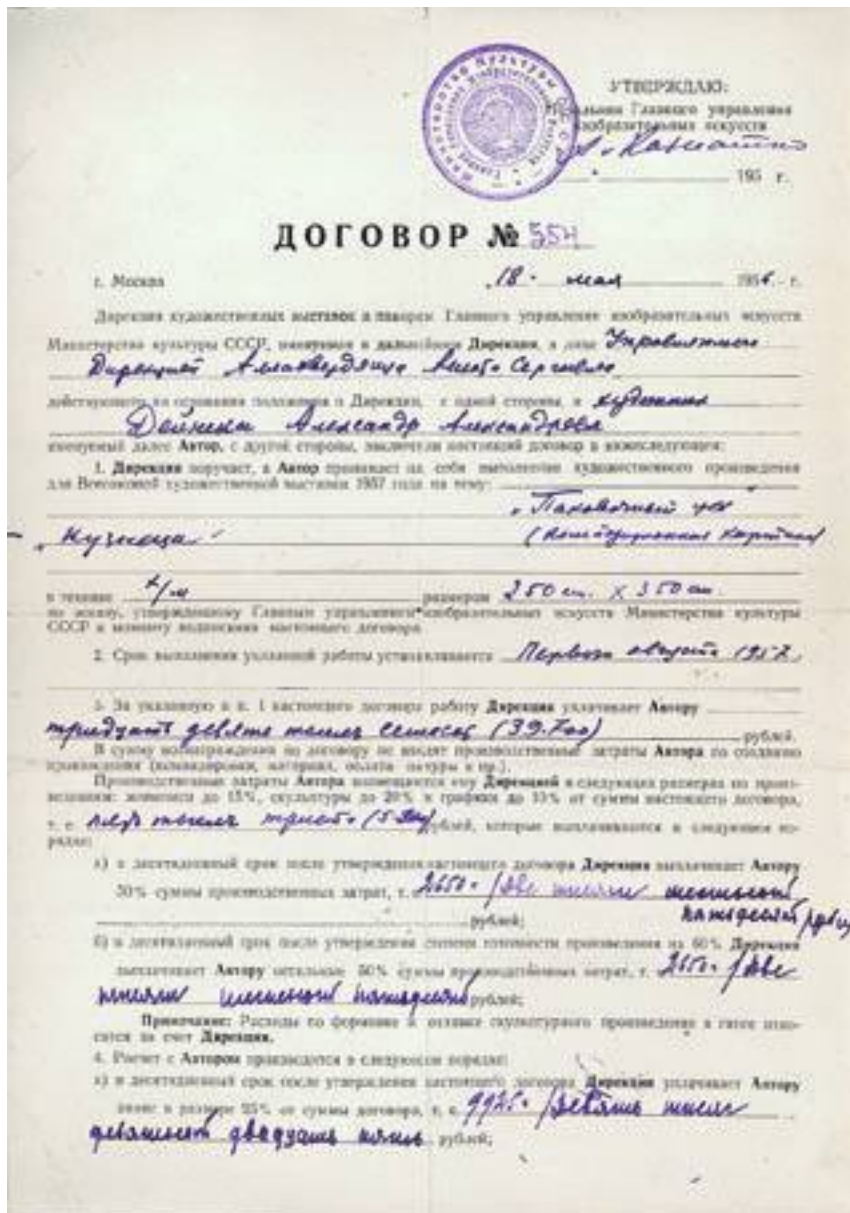 Министерство Культуры СССР
УТВЕРЖДАЮ:
Начальник Главного управления
изобразительных искусств
195 г.
ДОГОВОР № 554
г. Москва „18" мая 1956 г.
Дирекция художественных выставок и панорам Главного управления изобразительных искусств
Министерства культуры СССР, именуемая в дальнейшем Дирекция, в лице Управляющего
Дирекцией
действующего на основании положения о Дирекции, с одной стороны, и художник
Дейнека Александр Александрович
именуемый далее Автор, с другой стороны, заключили настоящий договор в нижеследующем:
1. Дирекция поручает, а Автор принимает на себя выполнение художественного произведения
для Всесоюзной художественной выставки 1957 года на тему:
„Кузница"
в технике х/м размером 250 см. х 350 см.
по эскизу, утвержденному Главным управлением изобразительных искусств Министерства культуры
СССР к моменту подписания настоящего договора.
2. Срок выполнения указанной работы устанавливается Первого августа 1957
3. За указанную в п. 1 настоящего договора работу Дирекция уплачивает Автору
тридцать девять тысяч семьсот (39.700) рублей.
В сумму вознаграждения по договору не входят производственные затраты Автора по созданию
произведения (командировки, материал, оплата натуры и пр.).
Производственные затраты Автора возмещаются ему Дирекцией в следующих размерах по произ-
ведениям: живописи до 15%, скульптуры до 20% и графики до 10% от суммы настоящего договора,
т. е. пять тысяч триста (5.300) рублей, которые выплачиваются в следующем по-
рядке:
а) в десятидневный срок после утверждения настоящего договора Дирекция выплачивает Автору
50% суммы производственных затрат, т. е. 2650 - /две тысячи шестьсот
пятьдесят рублей;
б) в десятидневный срок после утверждения степени готовности произведения на 60% Дирекция
выплачивает Автору остальные 50% суммы производственных затрат, т. е. 2650 - /две
тысячи шестьсот пятьдесят рублей;
Примечание: Расходы по формовке и отливке скульптурного произведения в гипсе отно-
сятся за счет Дирекции.
4. Расчет с Автором производится в следующем порядке:
а) в десятидневный срок после утверждения настоящего договора Дирекция уплачивает Автору
аванс в размере 25% от суммы договора, т. е. 9925 - /девять тысяч
девятьсот двадцать пять рублей;